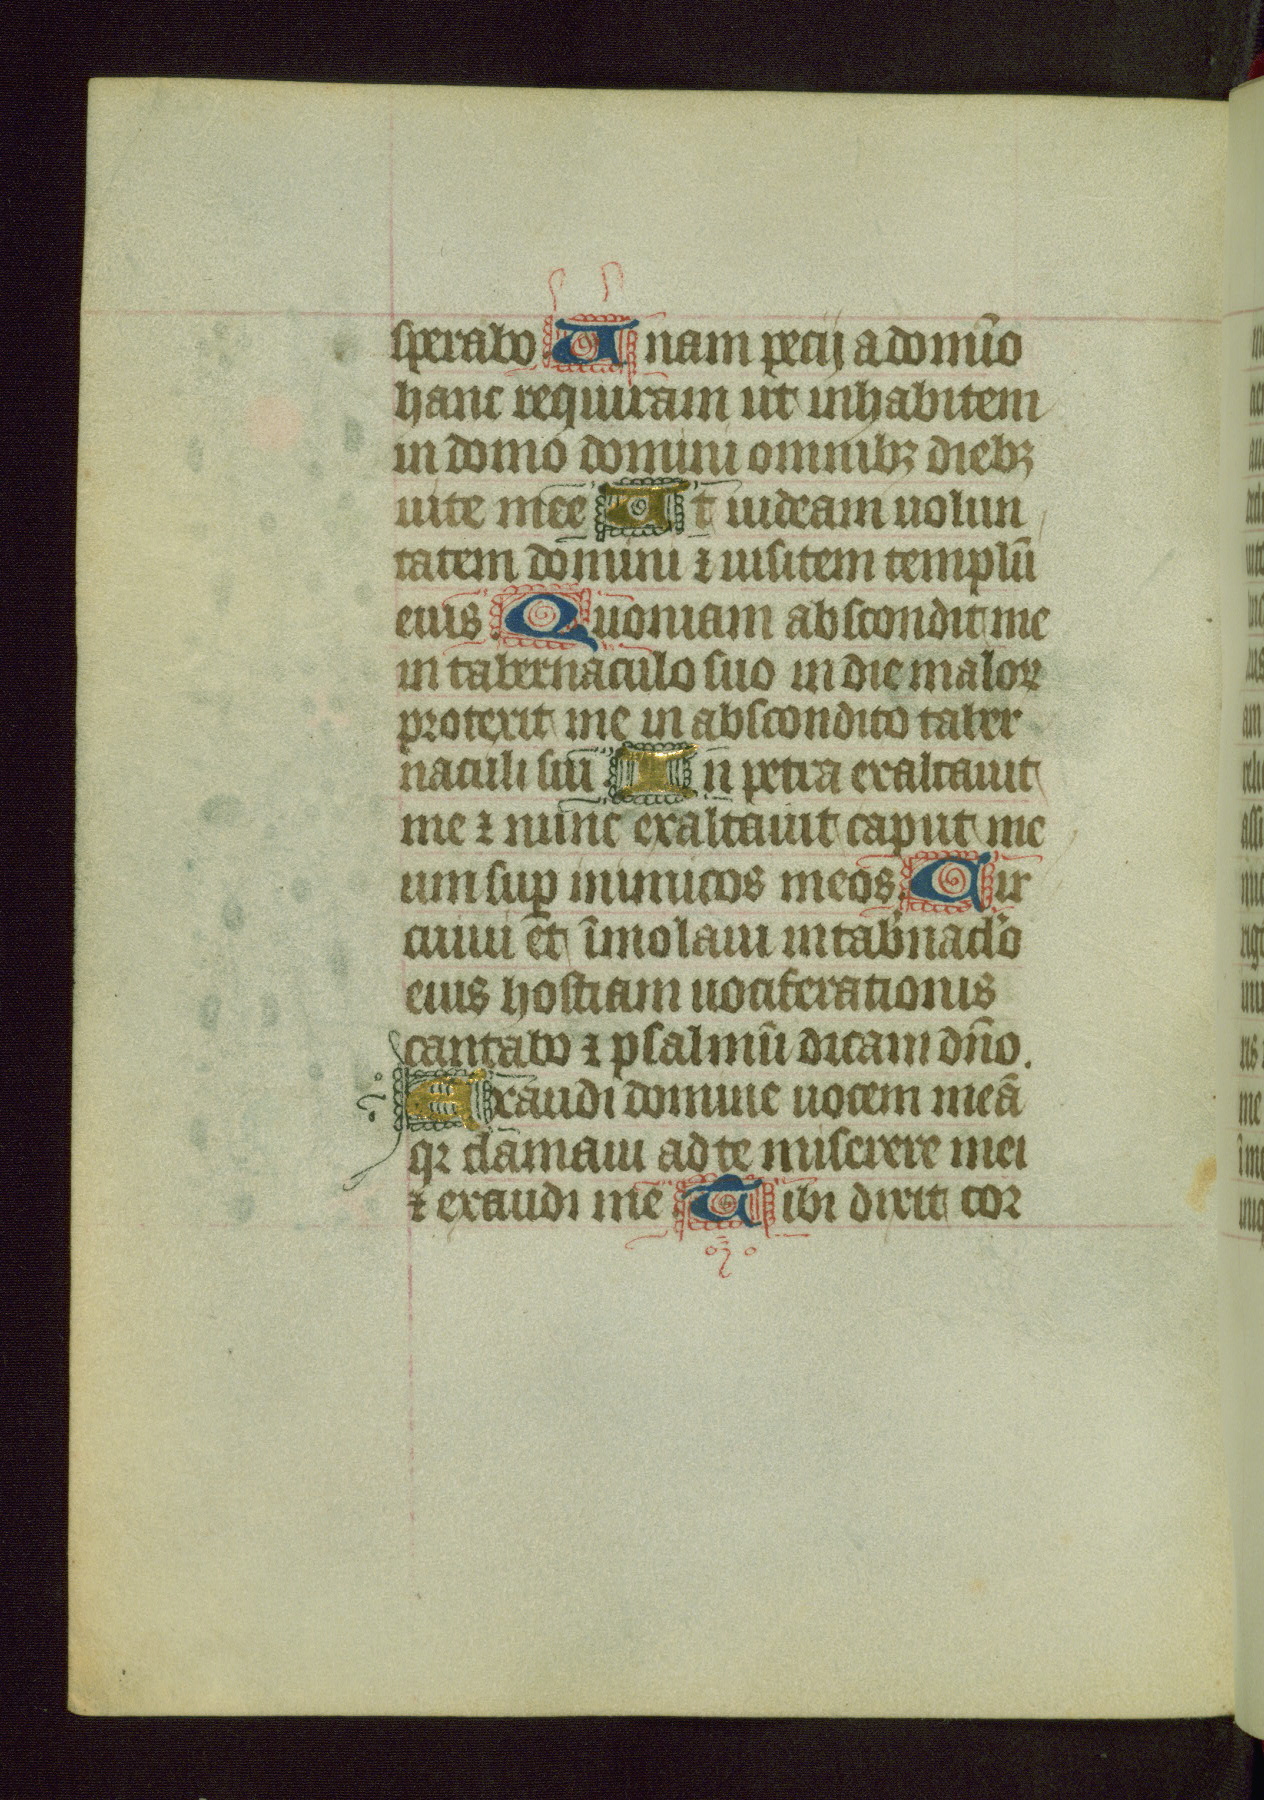 sperabo Unam pecij a domīo
hanc requiram ut inhabitem
in domo domini omnibꝫ diebꝫ
uite mee Ut uideam uolun
tatem domini ⁊ uisitem templū
eius Quoniam abscondit me
in tabernaculo suo in die maloꝝ
protexit me in abscondito taber
naculi sui In petra exaltauit
me ⁊ nunc exaltauit caput me
um suꝑ inimicos meos. Cir
cuiui et īmolaui in tab̄naclō
eius hostiam uociferationis
cantabo ⁊ psalmū dicam dn̄o.
Exaudi domine uocem meā
qꝛ clamaui ad te miserere mei
⁊ exaudi me Tibi dixit cor